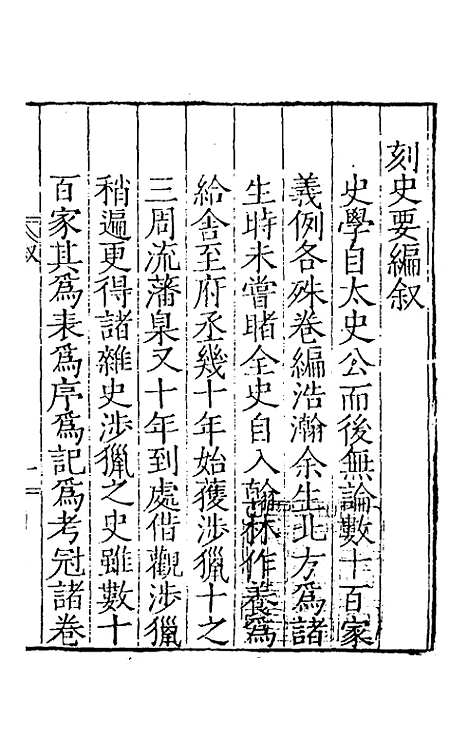 刻史要編叙
史學自太史公而後無論數十百家
義例各殊卷編浩瀚余生北方爲諸
生時未嘗睹全史自入翰林作養爲
給舍至府丞幾十年始獲涉獵十之
三周流藩臬又十年到處借觀涉獵
稍遍更得諸雜史涉獵之史雖數十
百家其爲表爲序爲記爲考冠諸卷